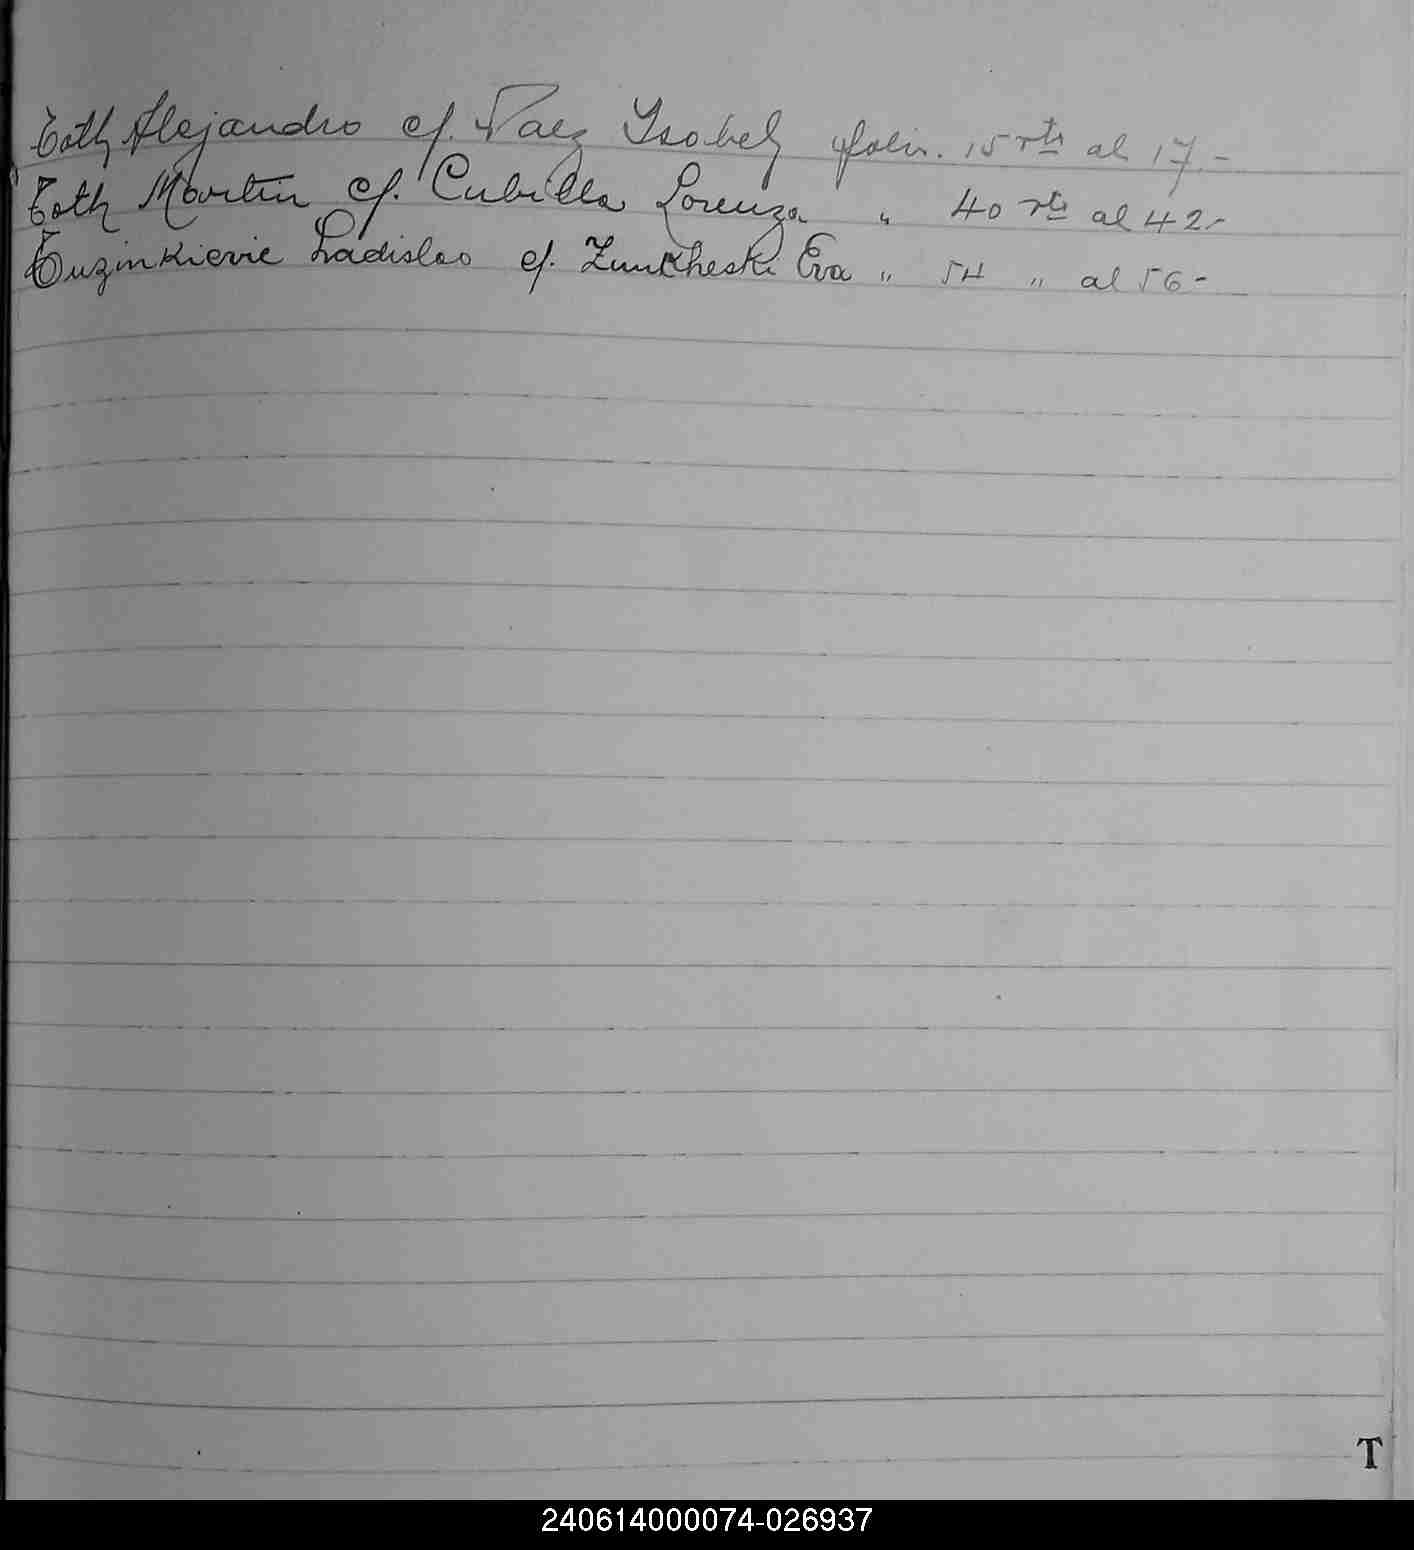 Toth Alejandro c/. Paez Isabel folio. 15 vta al 17.-
Toth Martin c/. Cubilla Lorenza " 40 vta al 42.-
Tuzinkievic Ladislao c/. Zunkheski Eva " 54 " al 56-
T
240614000074-026937